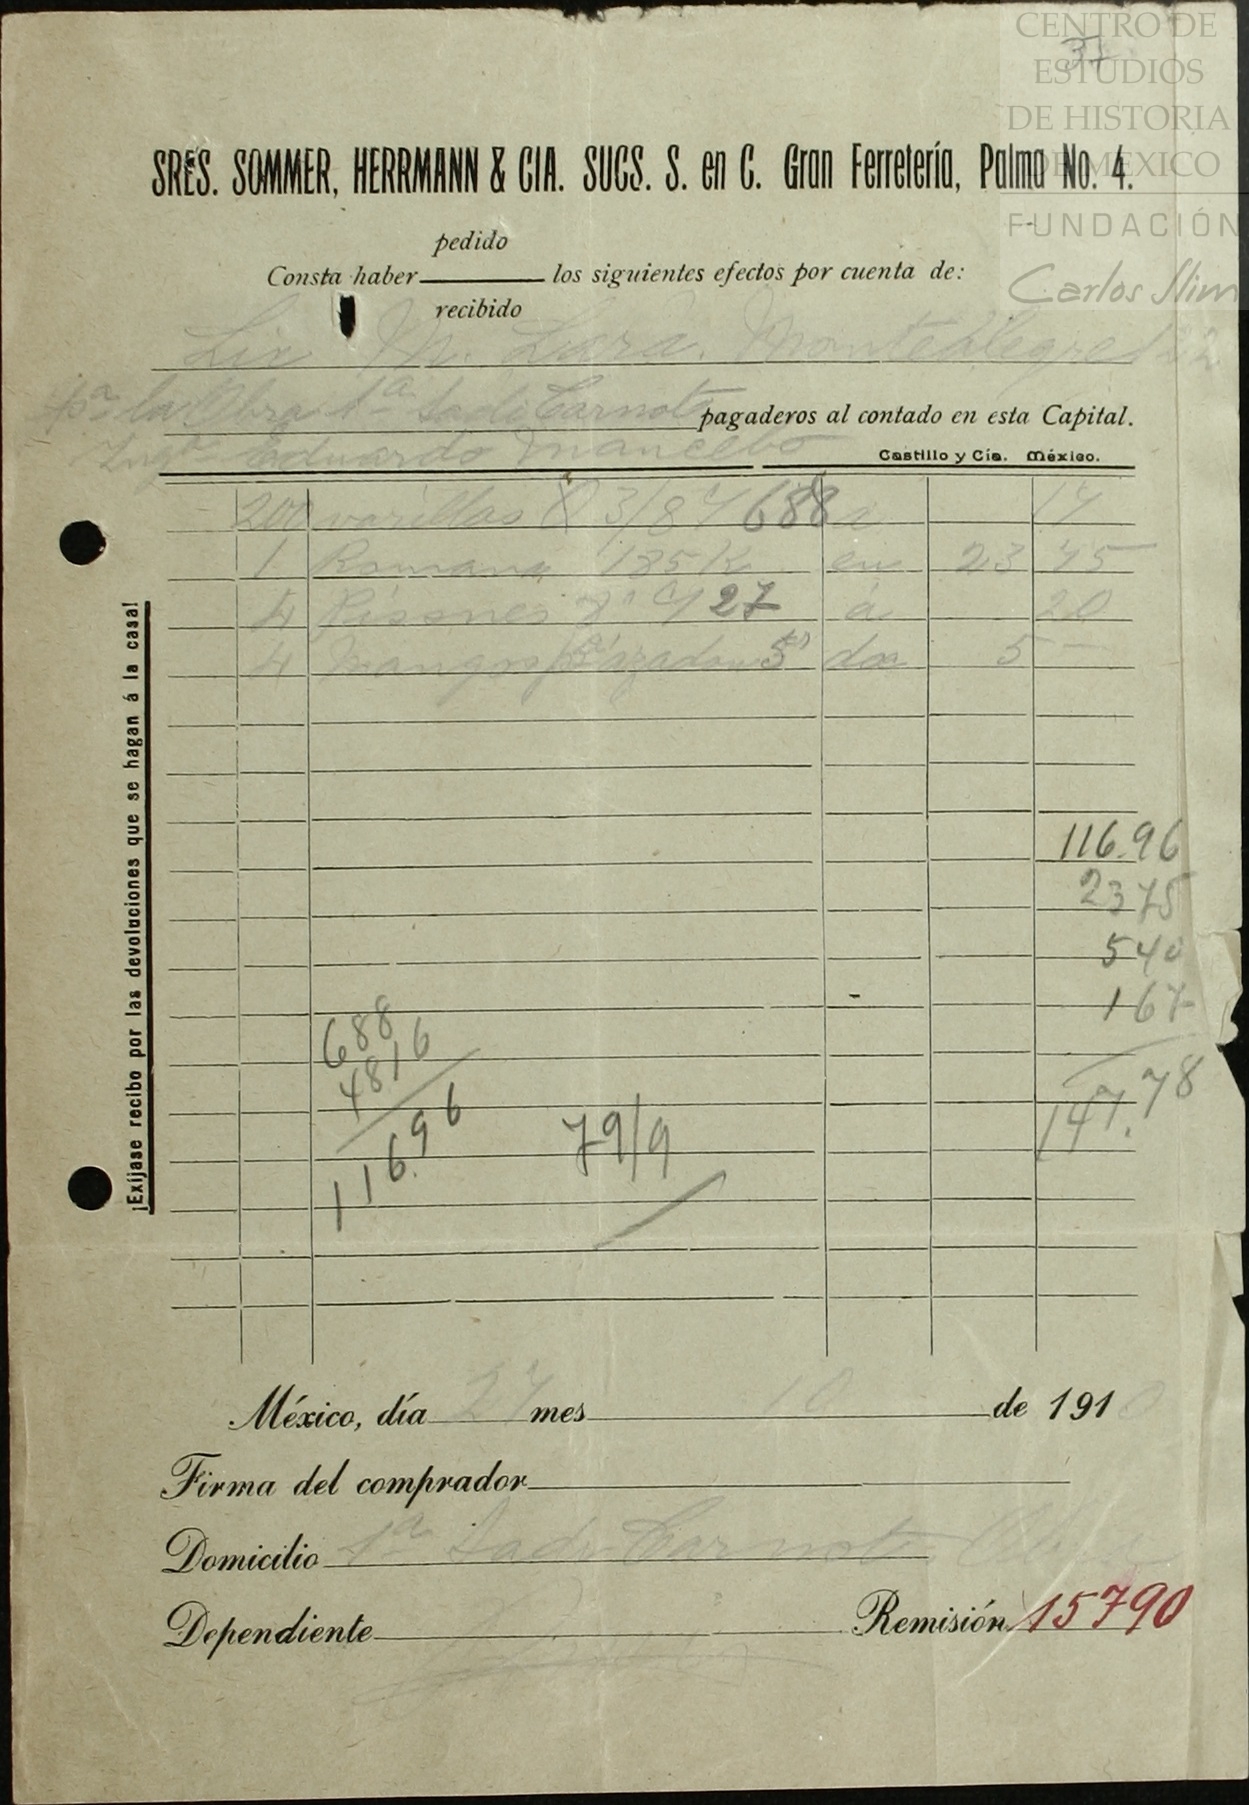 CENTRO DE
ESTUDIOS
DE HISTORIA
DE MEXICO
FUNDACIÓN
Carlos Slim
37
SRES. SOMMER, HERRMANN & CIA. SUCS. S. en C. Gran Ferretería, Palma No. 4.
pedido
Consta haber los siguientes efectos por cuenta de:
recibido
Lic M. Lara. Montealegre 22
pa la Obra 1a Sadi Carnot pagaderos al contado en esta Capital.
Ingo Eduardo Mancebo
Castillo y Cía. México.
200 varillas 3/8 688 a 17
1 Romana 135 K en 23 75
4 Pisones 27 á 20
4 Mangos pa azadon 5 doc 5 —
¡Exíjase recibo por las devoluciones que se hagan á la casa!
116.96
23 75
5 40
1 67
147.78
688
4816
116.96
79/9
México, día 27 mes 10 de 1910
Firma del comprador
Domicilio 1a Sadi Carnot
Dependiente
Remisión 15790